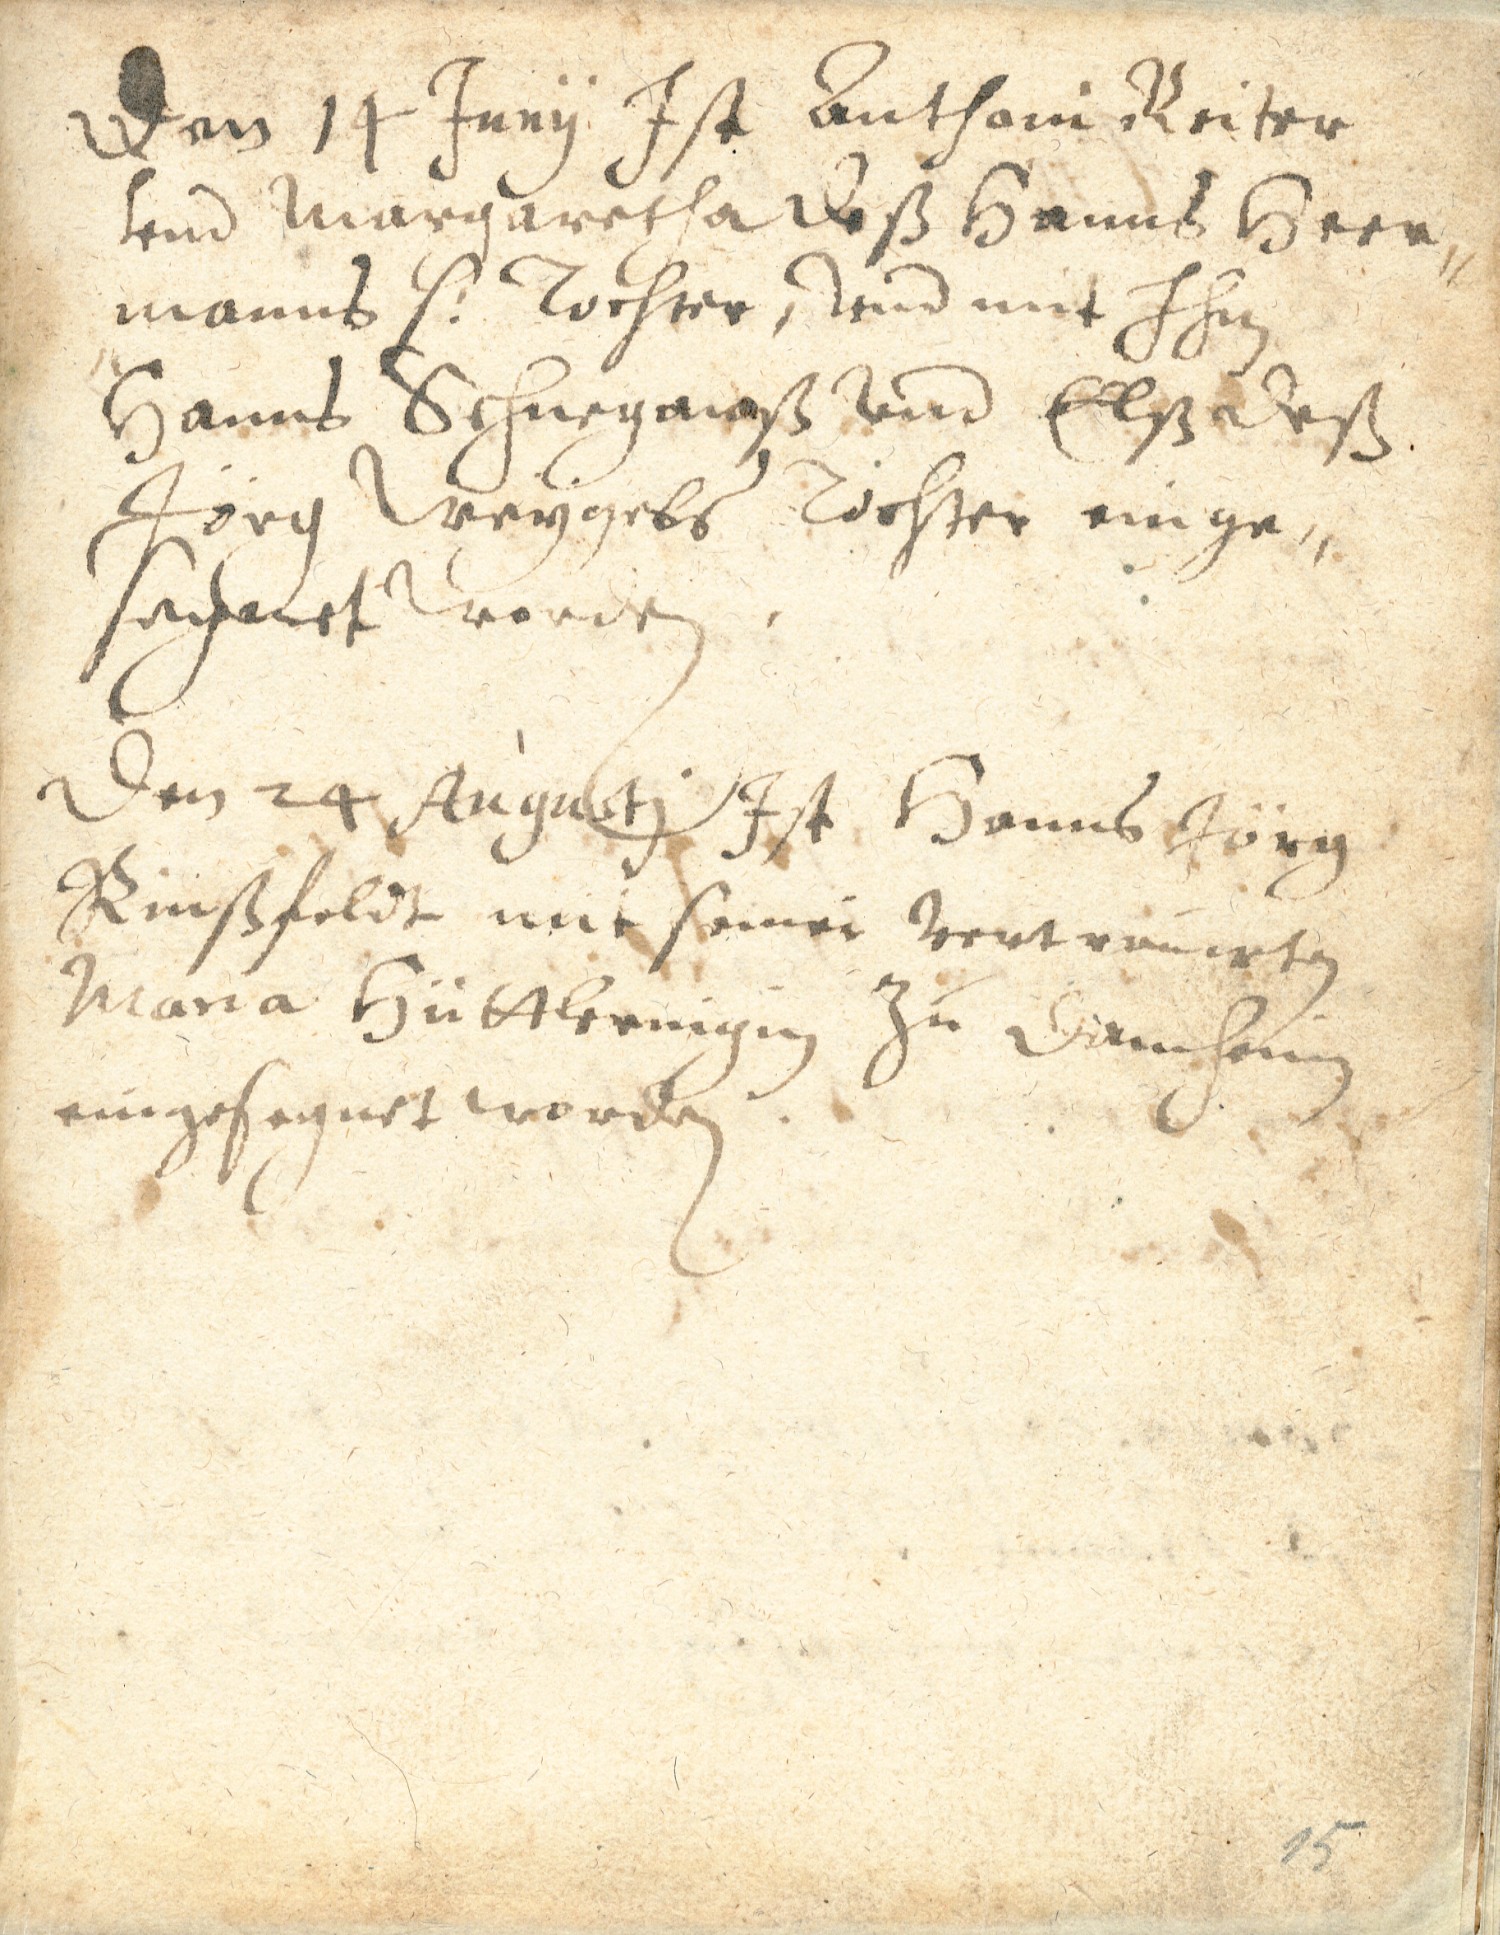 Den 14 Junij Ist Anthoni Reiter
vnd Margaretha deß Hanns Heer„
manns s: Tochter, vnd mit Ihm
Hanns Schnegaaß vnd Elß deß
Jörg Weygels Tochter einge„
segnet worden.
Den 24 Augustj Ist Hanns Jörg
Rinßfeldt mit seiner vertrauwten
Maria Hüttlerinigin zu Damheim
eingesegnet worden.
15